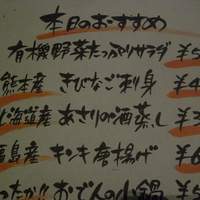 本日のおすすめ
有機野菜たっぷりサラダ ¥5
熊本産 きびなご刺身 ¥4
北海道産 あさりの酒蒸し ¥3
島産 キンキ唐揚げ ¥6
ったか!! おでんの小鍋 ¥5